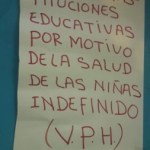 TITUCIONES
EDUCATIVAS
POR MOTIVO
DE LA SALUD
DE LAS NIÑAS
INDEFINIDO
(V.P.H)